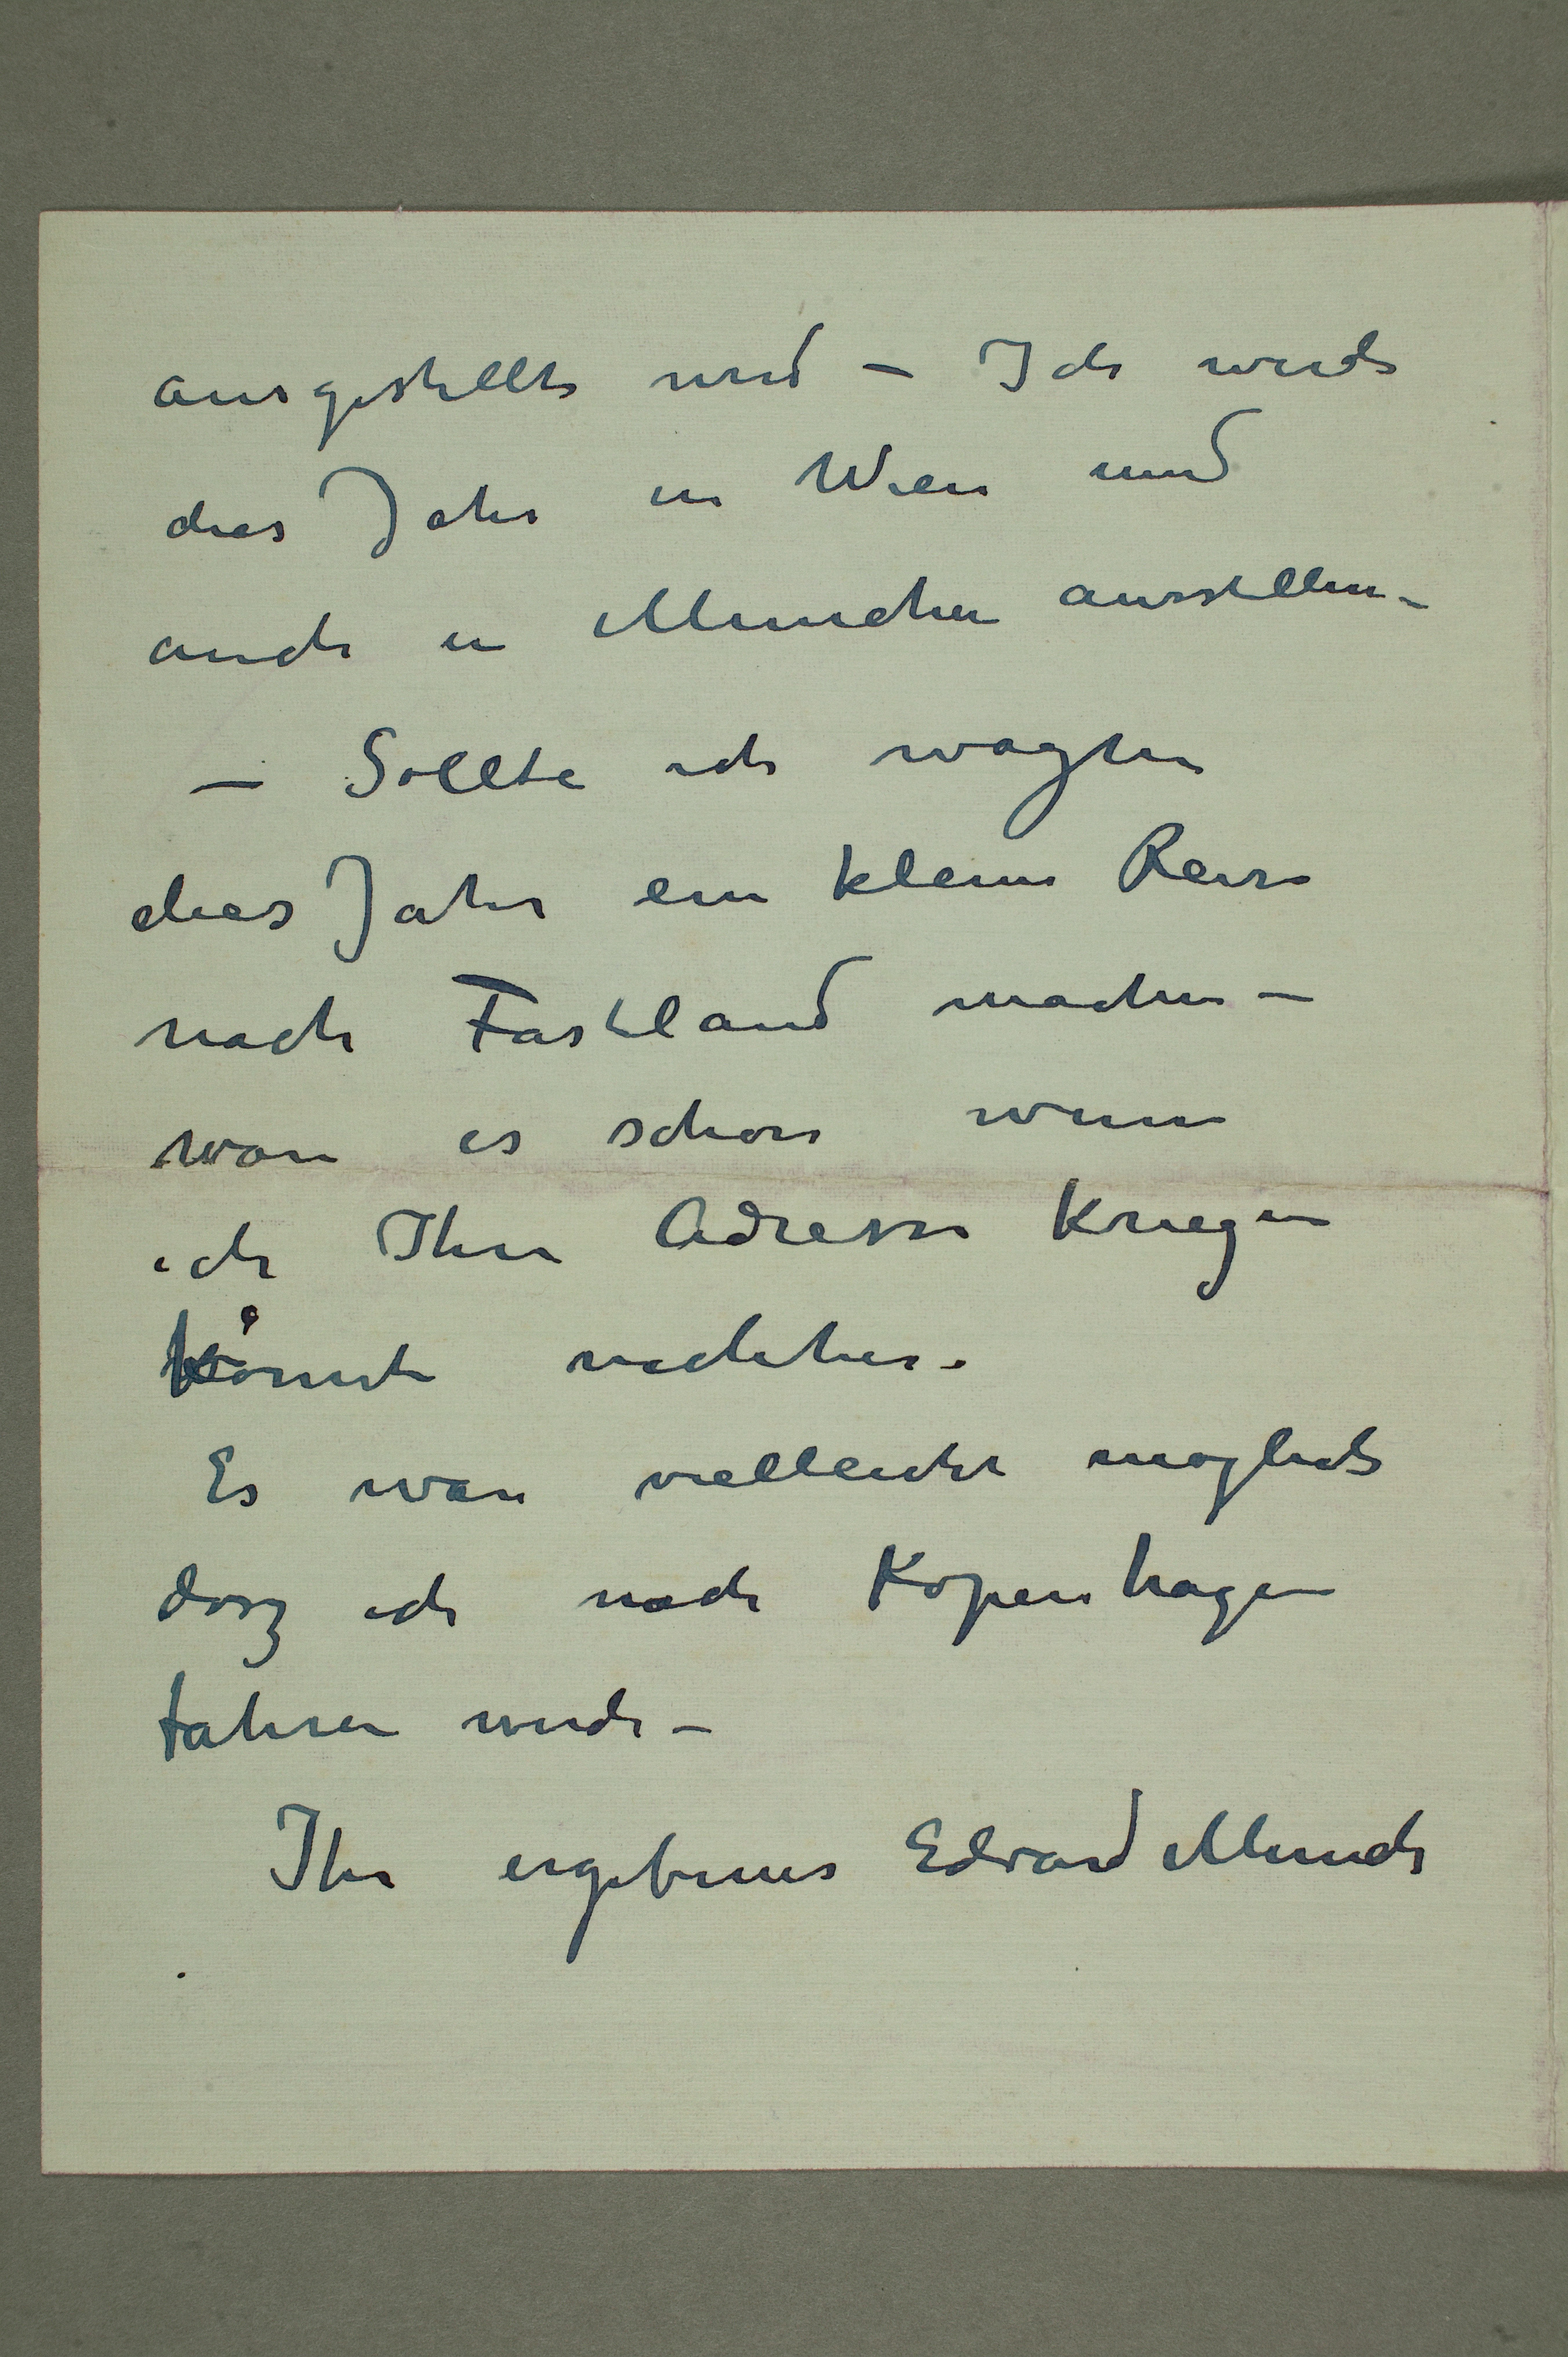 ausgestellt wird – Ich werde
dies Jahr in Wien und
auch in Munchen ausstellen –
– Sollte ich wagen
dies Jahr ein kleine Reise
nach Fastland machen –
war es schon wenn
ich Ihre Adresse kriegen
könnte nachher.
Es war vielleicht moglich
dasz ich nach Kopenhagen
fahren werde –
Ihr ergebenes Edvard Munch